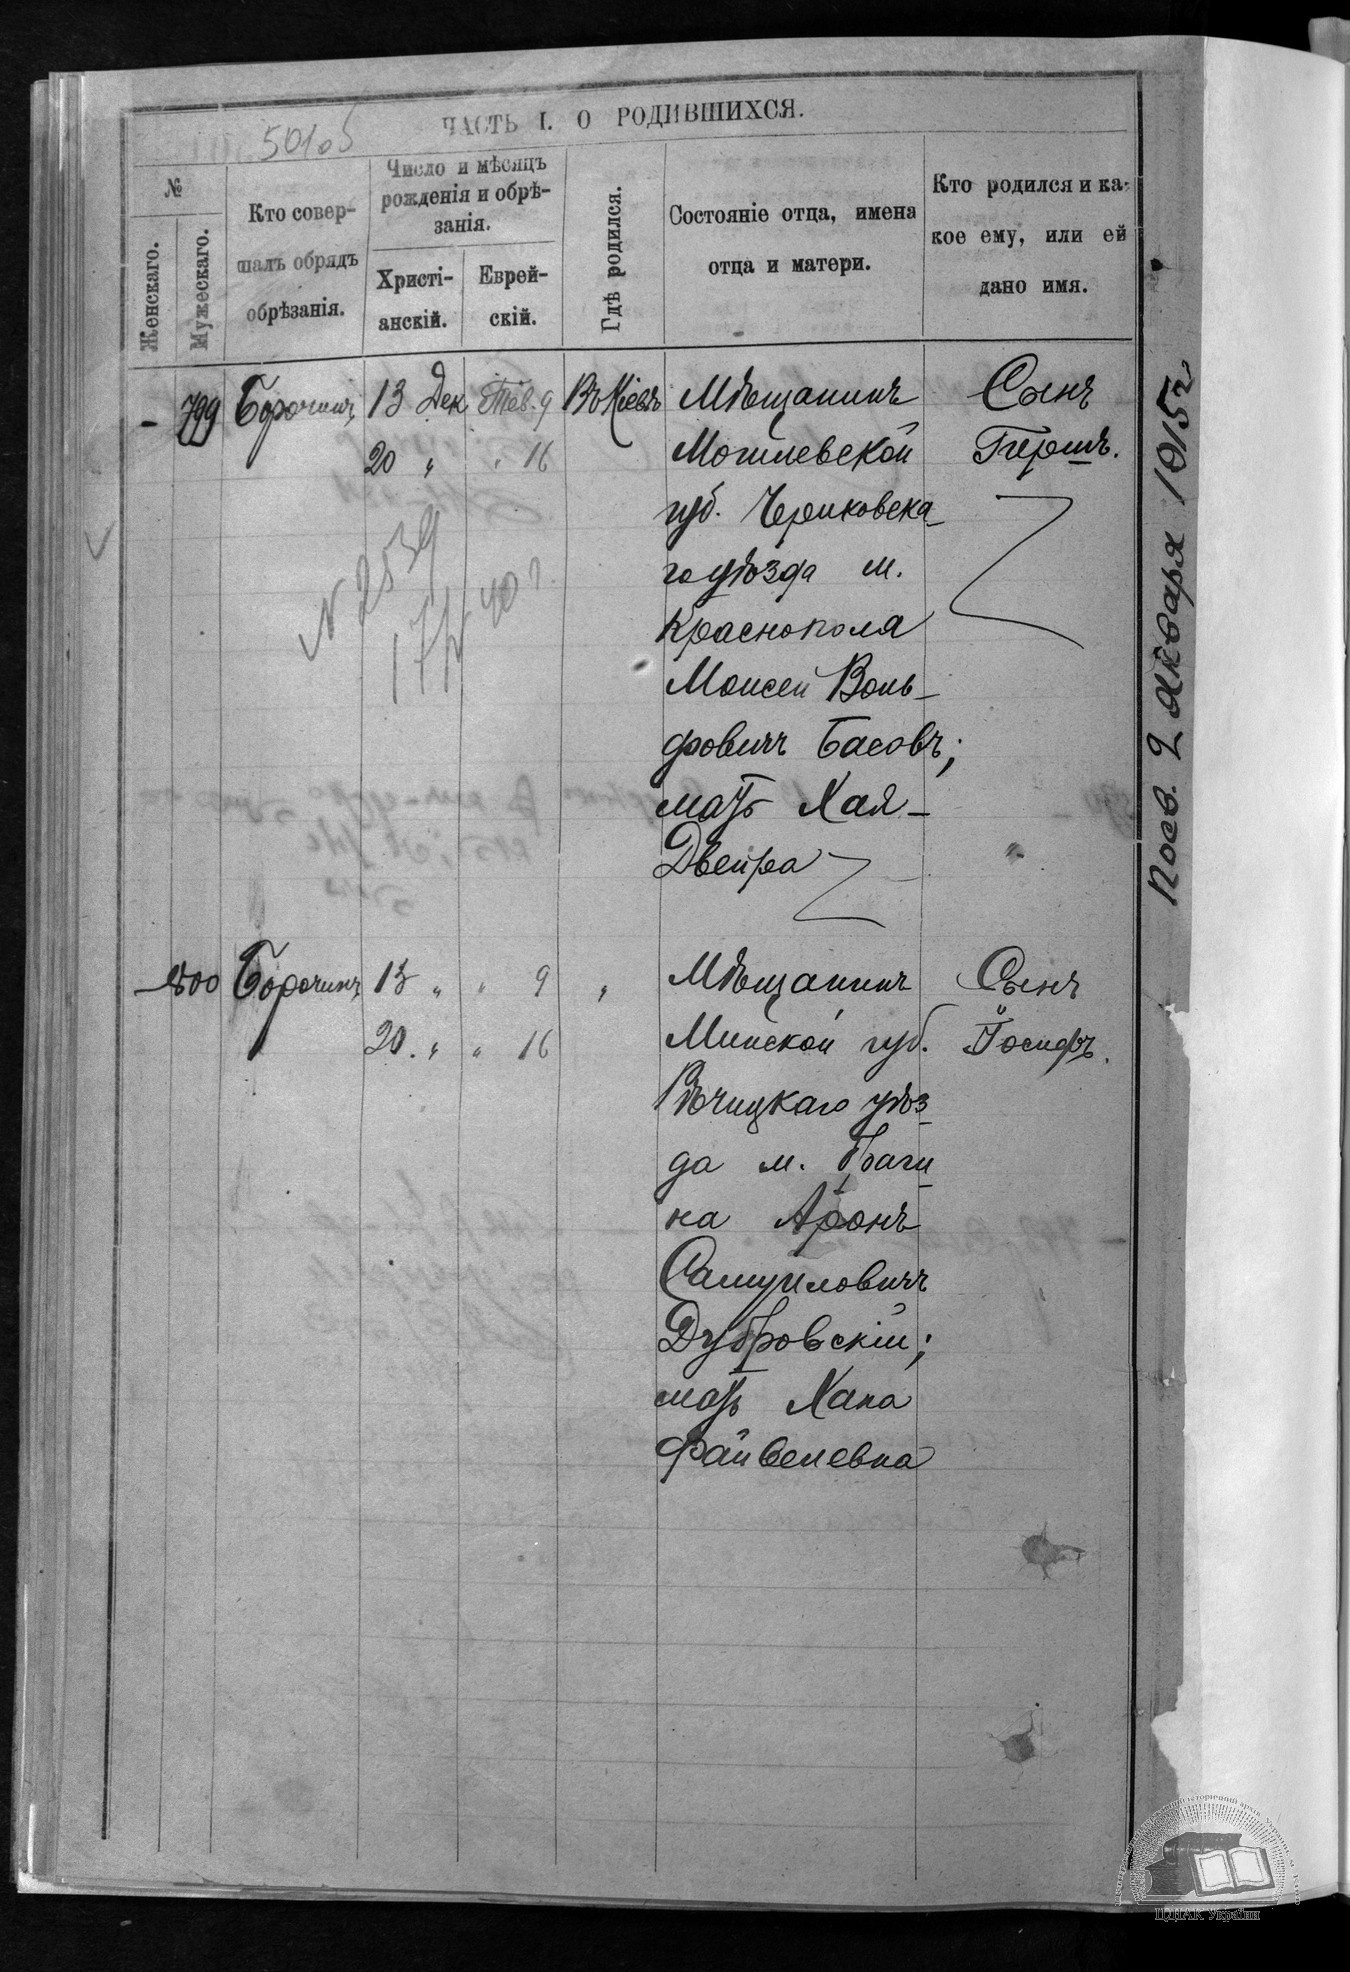 ЧАСТЬ I. О РОДИВШИХСЯ.
№
Женскаго.
Мужескаго.
Кто совер-
шалъ обрядъ
обрѣзанія.
Число и мѣсяцъ
рожденія и обрѣ-
занія.
Христі-
анскій.
Еврей-
скій.
Гдѣ родился.
Состояніе отца, имена
отца и матери.
Кто родился и ка-
кое ему, или ей
дано имя.
- 799 Борочинъ 13 Дек Тев. 9 Въ Кіевѣ Мѣщанинъ Сынъ
20 " " 16 Могилевской Гершъ.
губ. Чериковска-
го уѣзда м.
Краснополя
Моисей Воль-
фовичъ Басовъ;
мать Хая-
Двейра
№ 2539
800 Борочинъ 13 " " 9 " Мѣщанинъ Сынъ
20. " " 16 Минской губ. Іосифъ.
Рѣчицкаго уѣз-
да м. Браги-
на Аронъ
Самуиловичъ
Дубровскій;
мать Хана
Файвелевна
Посв. 2 Января 1915 г
ЦДІАК України